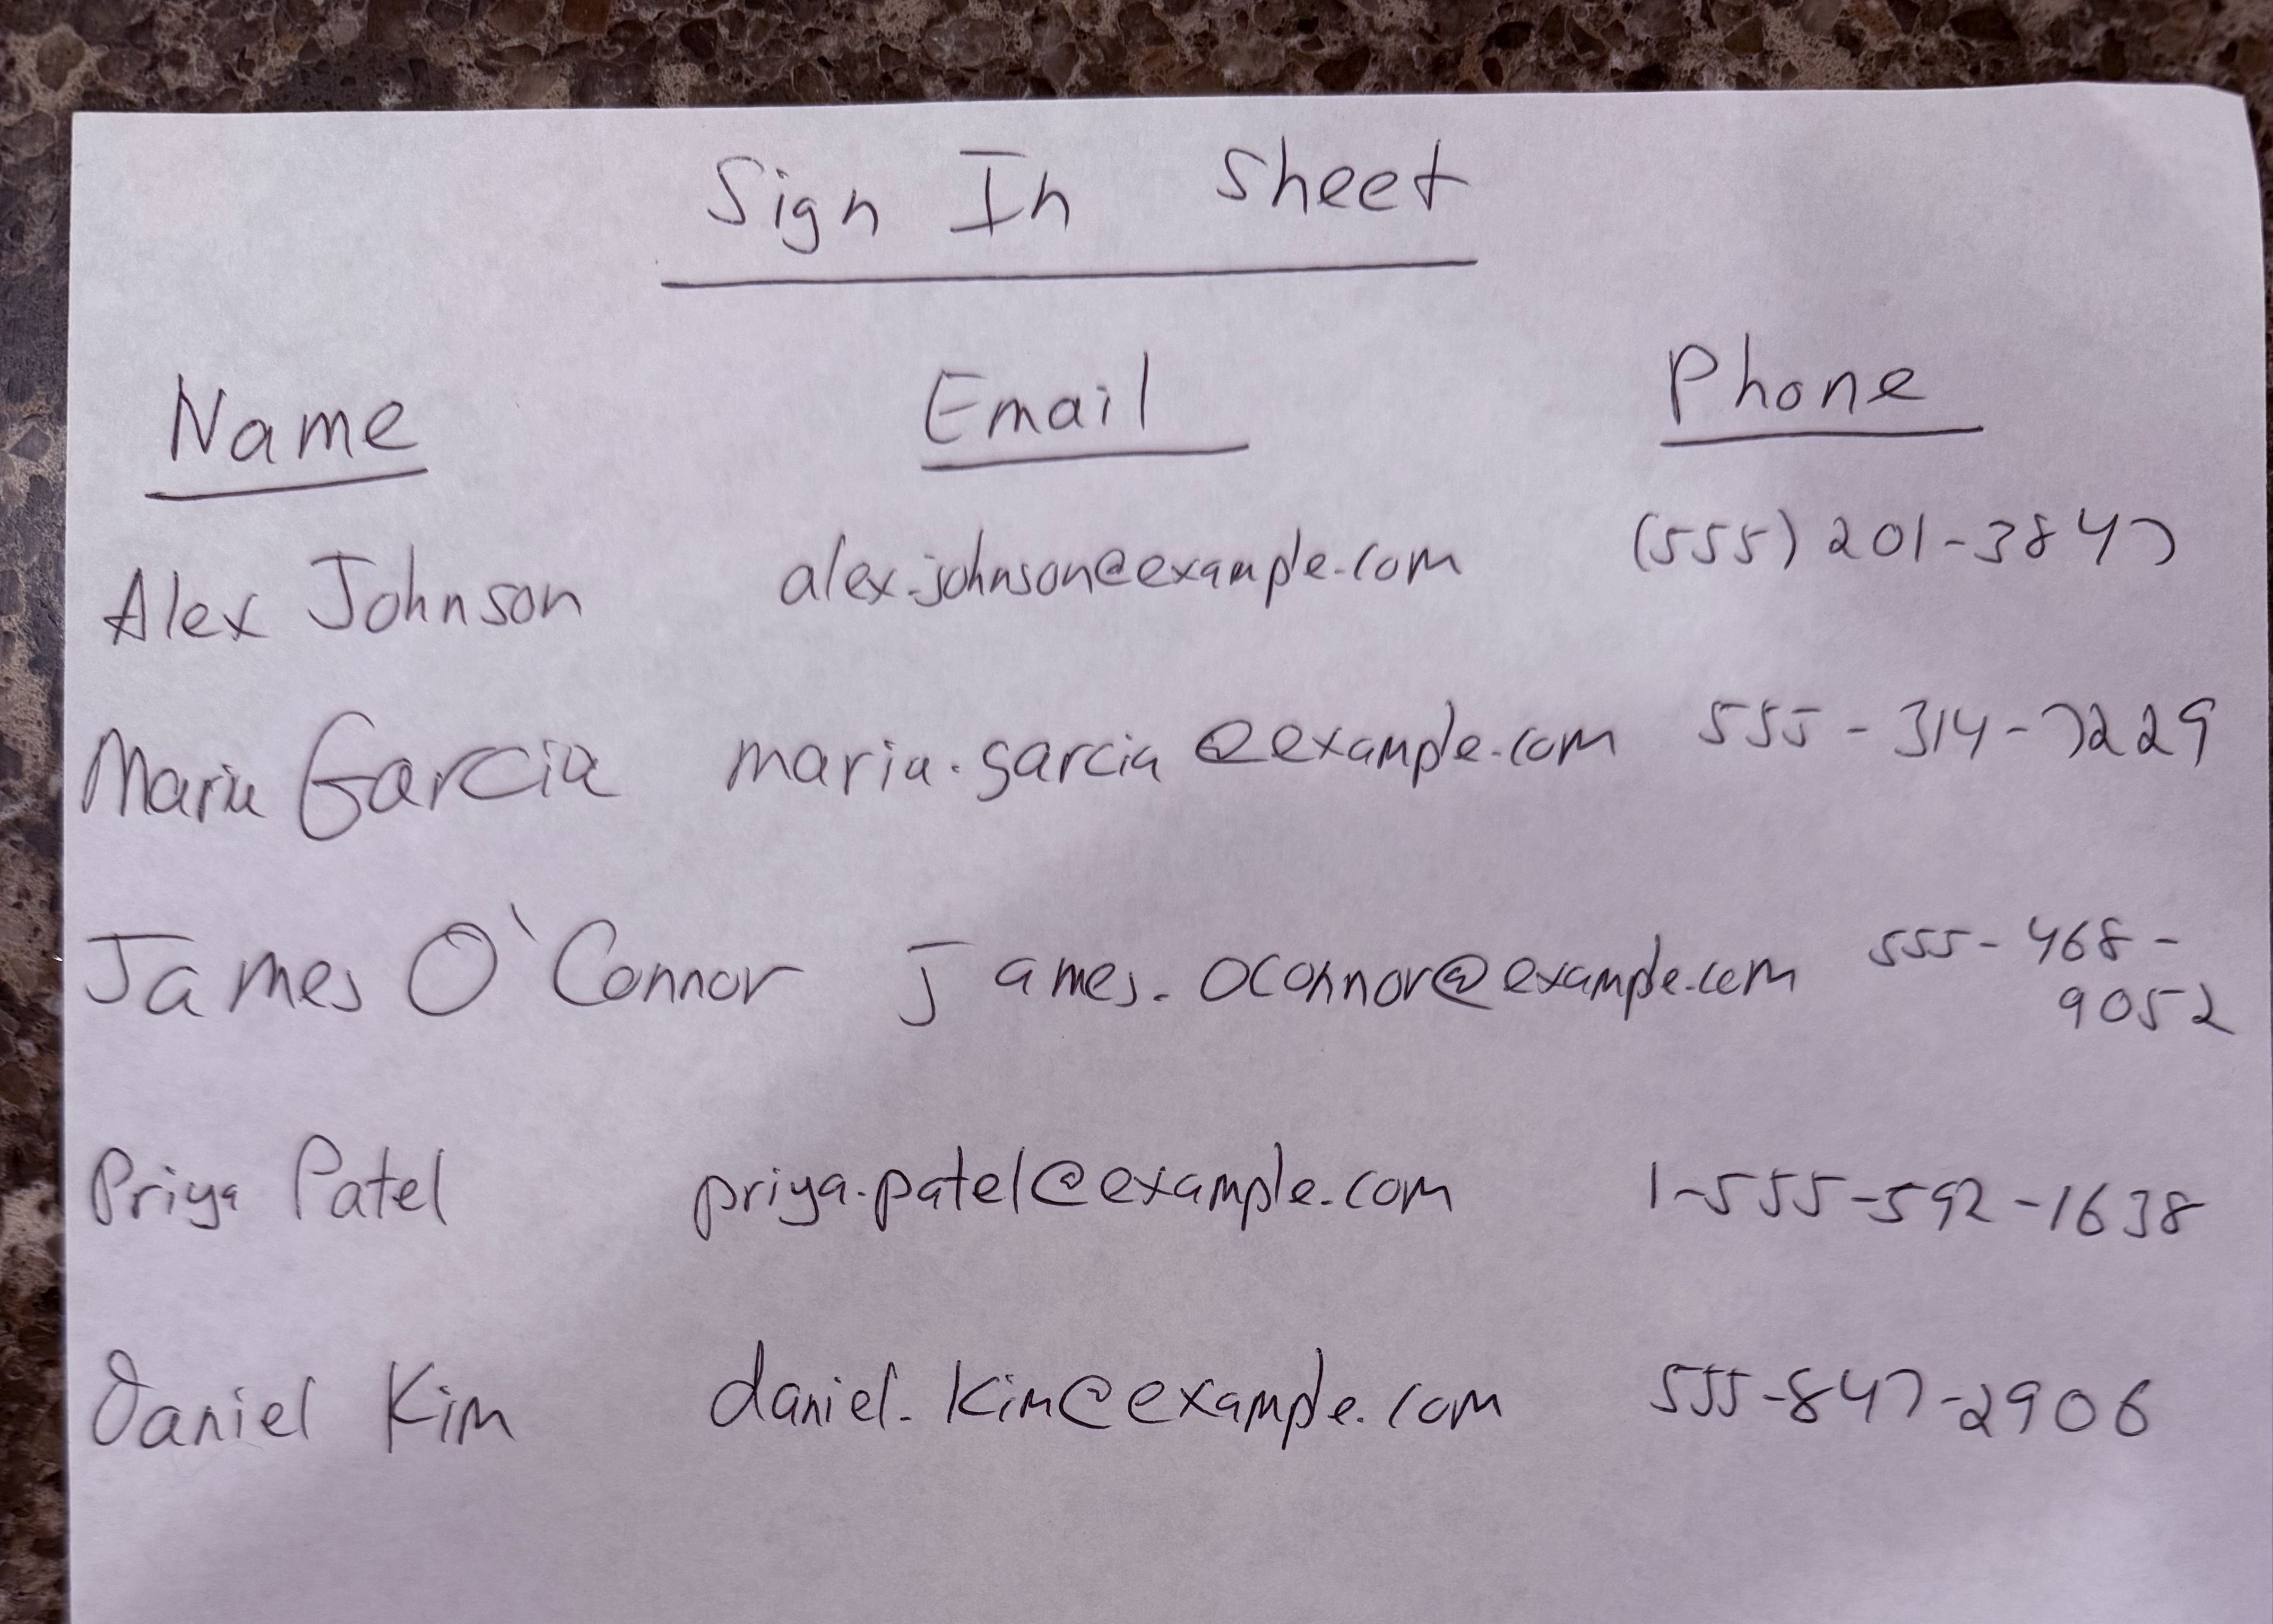 Sign In Sheet
Name Email Phone
Alex Johnson alex.johnson@example.com (555) 201-3847
Maria Garcia maria.garcia@example.com 555-314-7229
James O'Connor James.oconnor@example.com 555-468-
9052
Priya Patel priya.patel@example.com 1-555-592-1638
Daniel Kim daniel.kim@example.com 555-847-2906